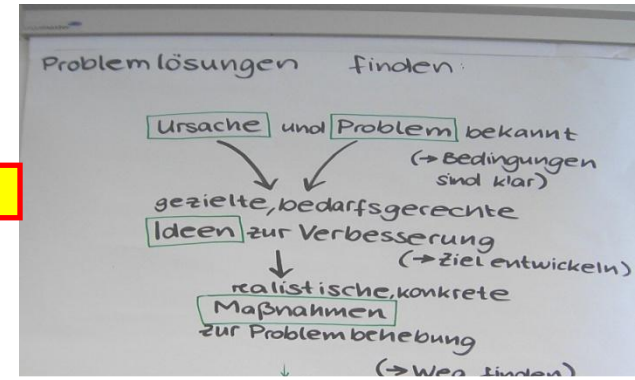 Problemlösungen finden:
Ursache und Problem bekannt
(→ Bedingungen
sind klar)
gezielte, bedarfsgerechte
Ideen zur Verbesserung
(→ Ziel entwickeln)
realistische, konkrete
Maßnahmen
zur Problembehebung
(→ Weg finden)